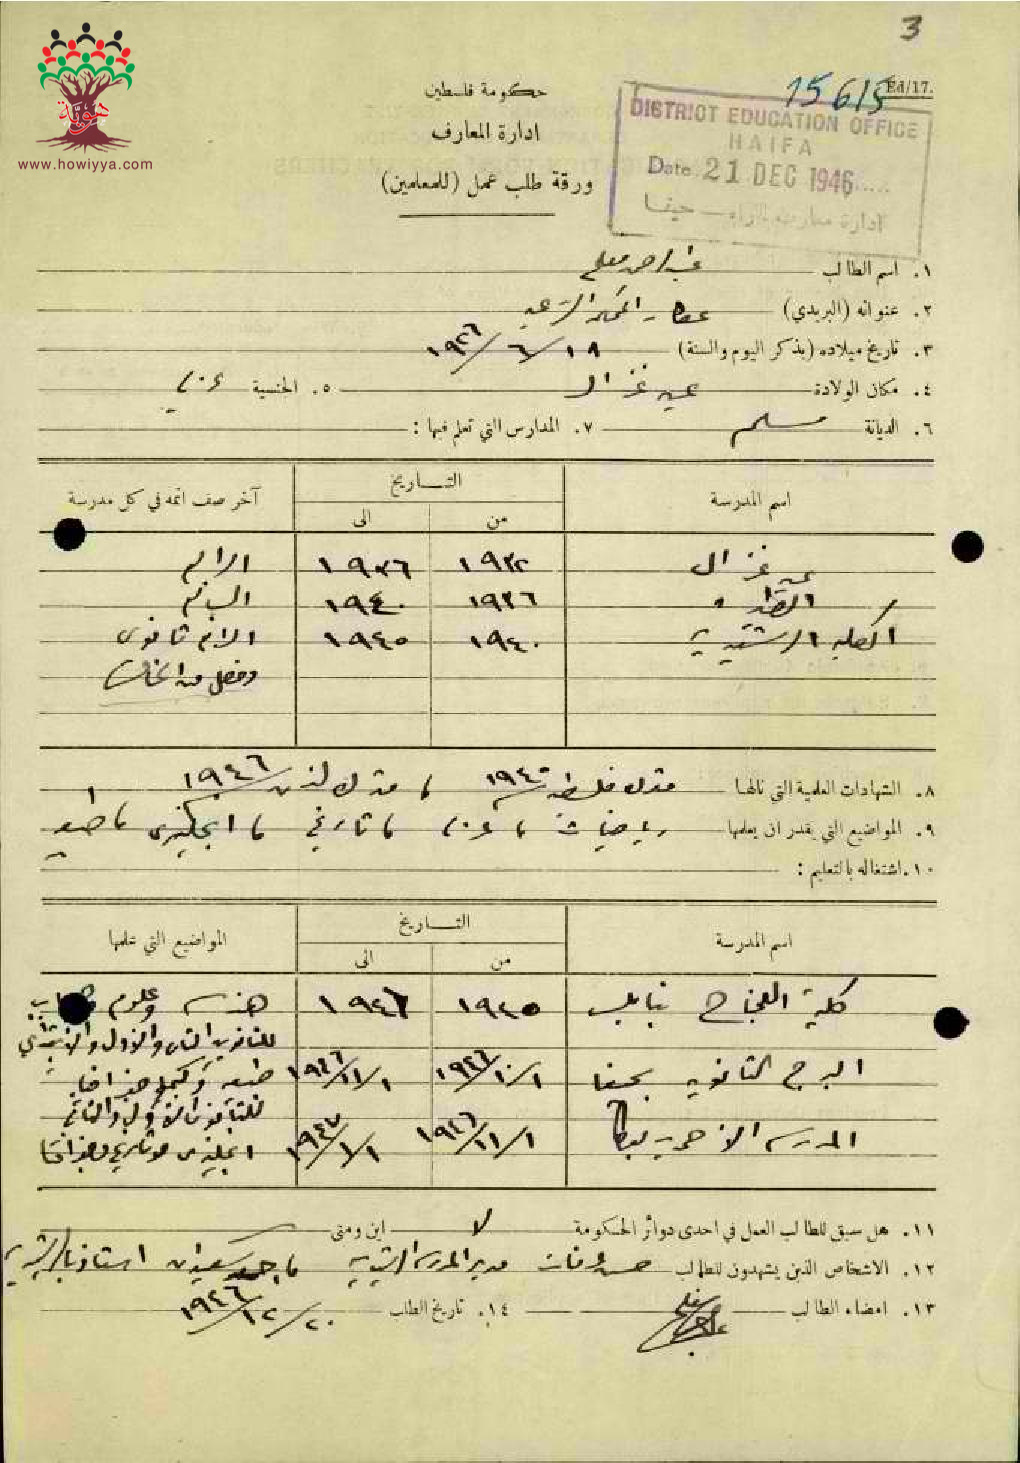 3
هوية
www.howiyya.com
Ed/17.
15615
حكومة فلسطين
ادارة المعارف
ورقة طلب عمل (للمعلمين)
DISTRICT EDUCATION OFFICE
HAIFA
Date 21 DEC 1946
ادارة معارف لواء حيفا
١. اسم الطالب
٢. عنوانه (البريدي) عكا - المحكمة الشرعية
٣. تاريخ ميلاده (بذكر اليوم والسنة) ١٨/٦/١٩٢٦
٤. مكان الولادة عين غزال ٥. الجنسية عربي
٦. الديانة مسلم ٧. المدارس التي تعلم فيها :
اسم المدرسة التاريخ آخر صف اتمه في كل مدرسة
من الى
عين غزال ١٩٣٢ ١٩٣٦ الرابع
١٩٣٦ ١٩٤٠ السابع
الكلية الرشيدية ١٩٤٠ ١٩٤٥ الرابع ثانوي
وفصل من الخامس
٨. الشهادات العلمية التي نالها مترك فلسطين ١٩٤٥ ، مترك لندن ١٩٤٦
٩. المواضيع التي يقدر ان يعلمها رياضيات ، عربي ، تاريخ ، انجليزي ، طبيعة
١٠. اشتغاله بالتعليم :
اسم المدرسة التاريخ المواضيع التي علمها
من الى
كلية النجاح بنابلس ١٩٤٥ ١٩٤٦ هندسة وعلوم وحساب
للثانوي الثاني والاول والابتدائي
البرج الثانوية بحيفا ١/١٠/١٩٤٦ ١/١١/١٩٤٦ طبيعة وكيمياء جغرافيا
المدرسة الاحمدية ١/١١/١٩٤٦ ١/١/١٩٤٧ انجليزي وتاريخ وجغرافيا
١١. هل سبق للطالب العمل في احدى دوائر الحكومة لا اين ومتى
١٢. الاشخاص الذين يشهدون للطالب حسن عرفات مدير المدرسة الرشيدية ، استاذ بالرشيدية
١٣. امضاء الطالب ١٤. تاريخ الطلب ٢٠/١٢/١٩٤٦